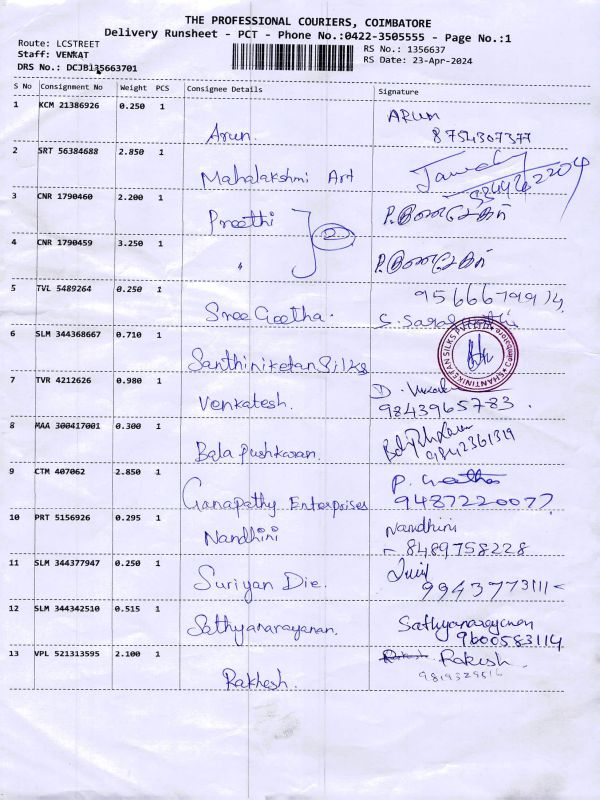 THE PROFESSIONAL COURIERS, COIMBATORE
Delivery Runsheet - PCT - Phone No.:0422-3505555 - Page No.:1
Route: LCSTREET
Staff: VENKAT
DRS No.: DCJB135663701
RS No.: 1356637
RS Date: 23-Apr-2024
S No Consignment No Weight PCS Consignee Details Signature
1 KCM 21386926 0.250 1 Arun. ARUN
8754307377
2 SRT 56384688 2.850 1 Mahalakshmi Art
3 CNR 1790460 2.200 1 Preethi
2
4 CNR 1790459 3.250 1 "
5 TVL 5489264 0.250 1 Sree Geetha.
6 SLM 344368667 0.710 1 Santhiniketan Silks
SHANTINIKETAN SILKS
7 TVR 4212626 0.980 1 Venkatesh.
9843965783.
8 MAA 300417001 0.300 1 Bala Pushkaran.
9842361319
9 CTM 407062 2.850 1 Ganapathy Enterprises P. Geetha
9487220077
10 PRT 5156926 0.295 1 Nandhini Nandhini
8489758228
11 SLM 344377947 0.250 1 Suriyan Die.
9943773111
12 SLM 344342510 0.515 1 Sathyanarayanan. Sathyanarayanan
9600583114
13 VPL 521313595 2.100 1 Rakhesh. Rakesh